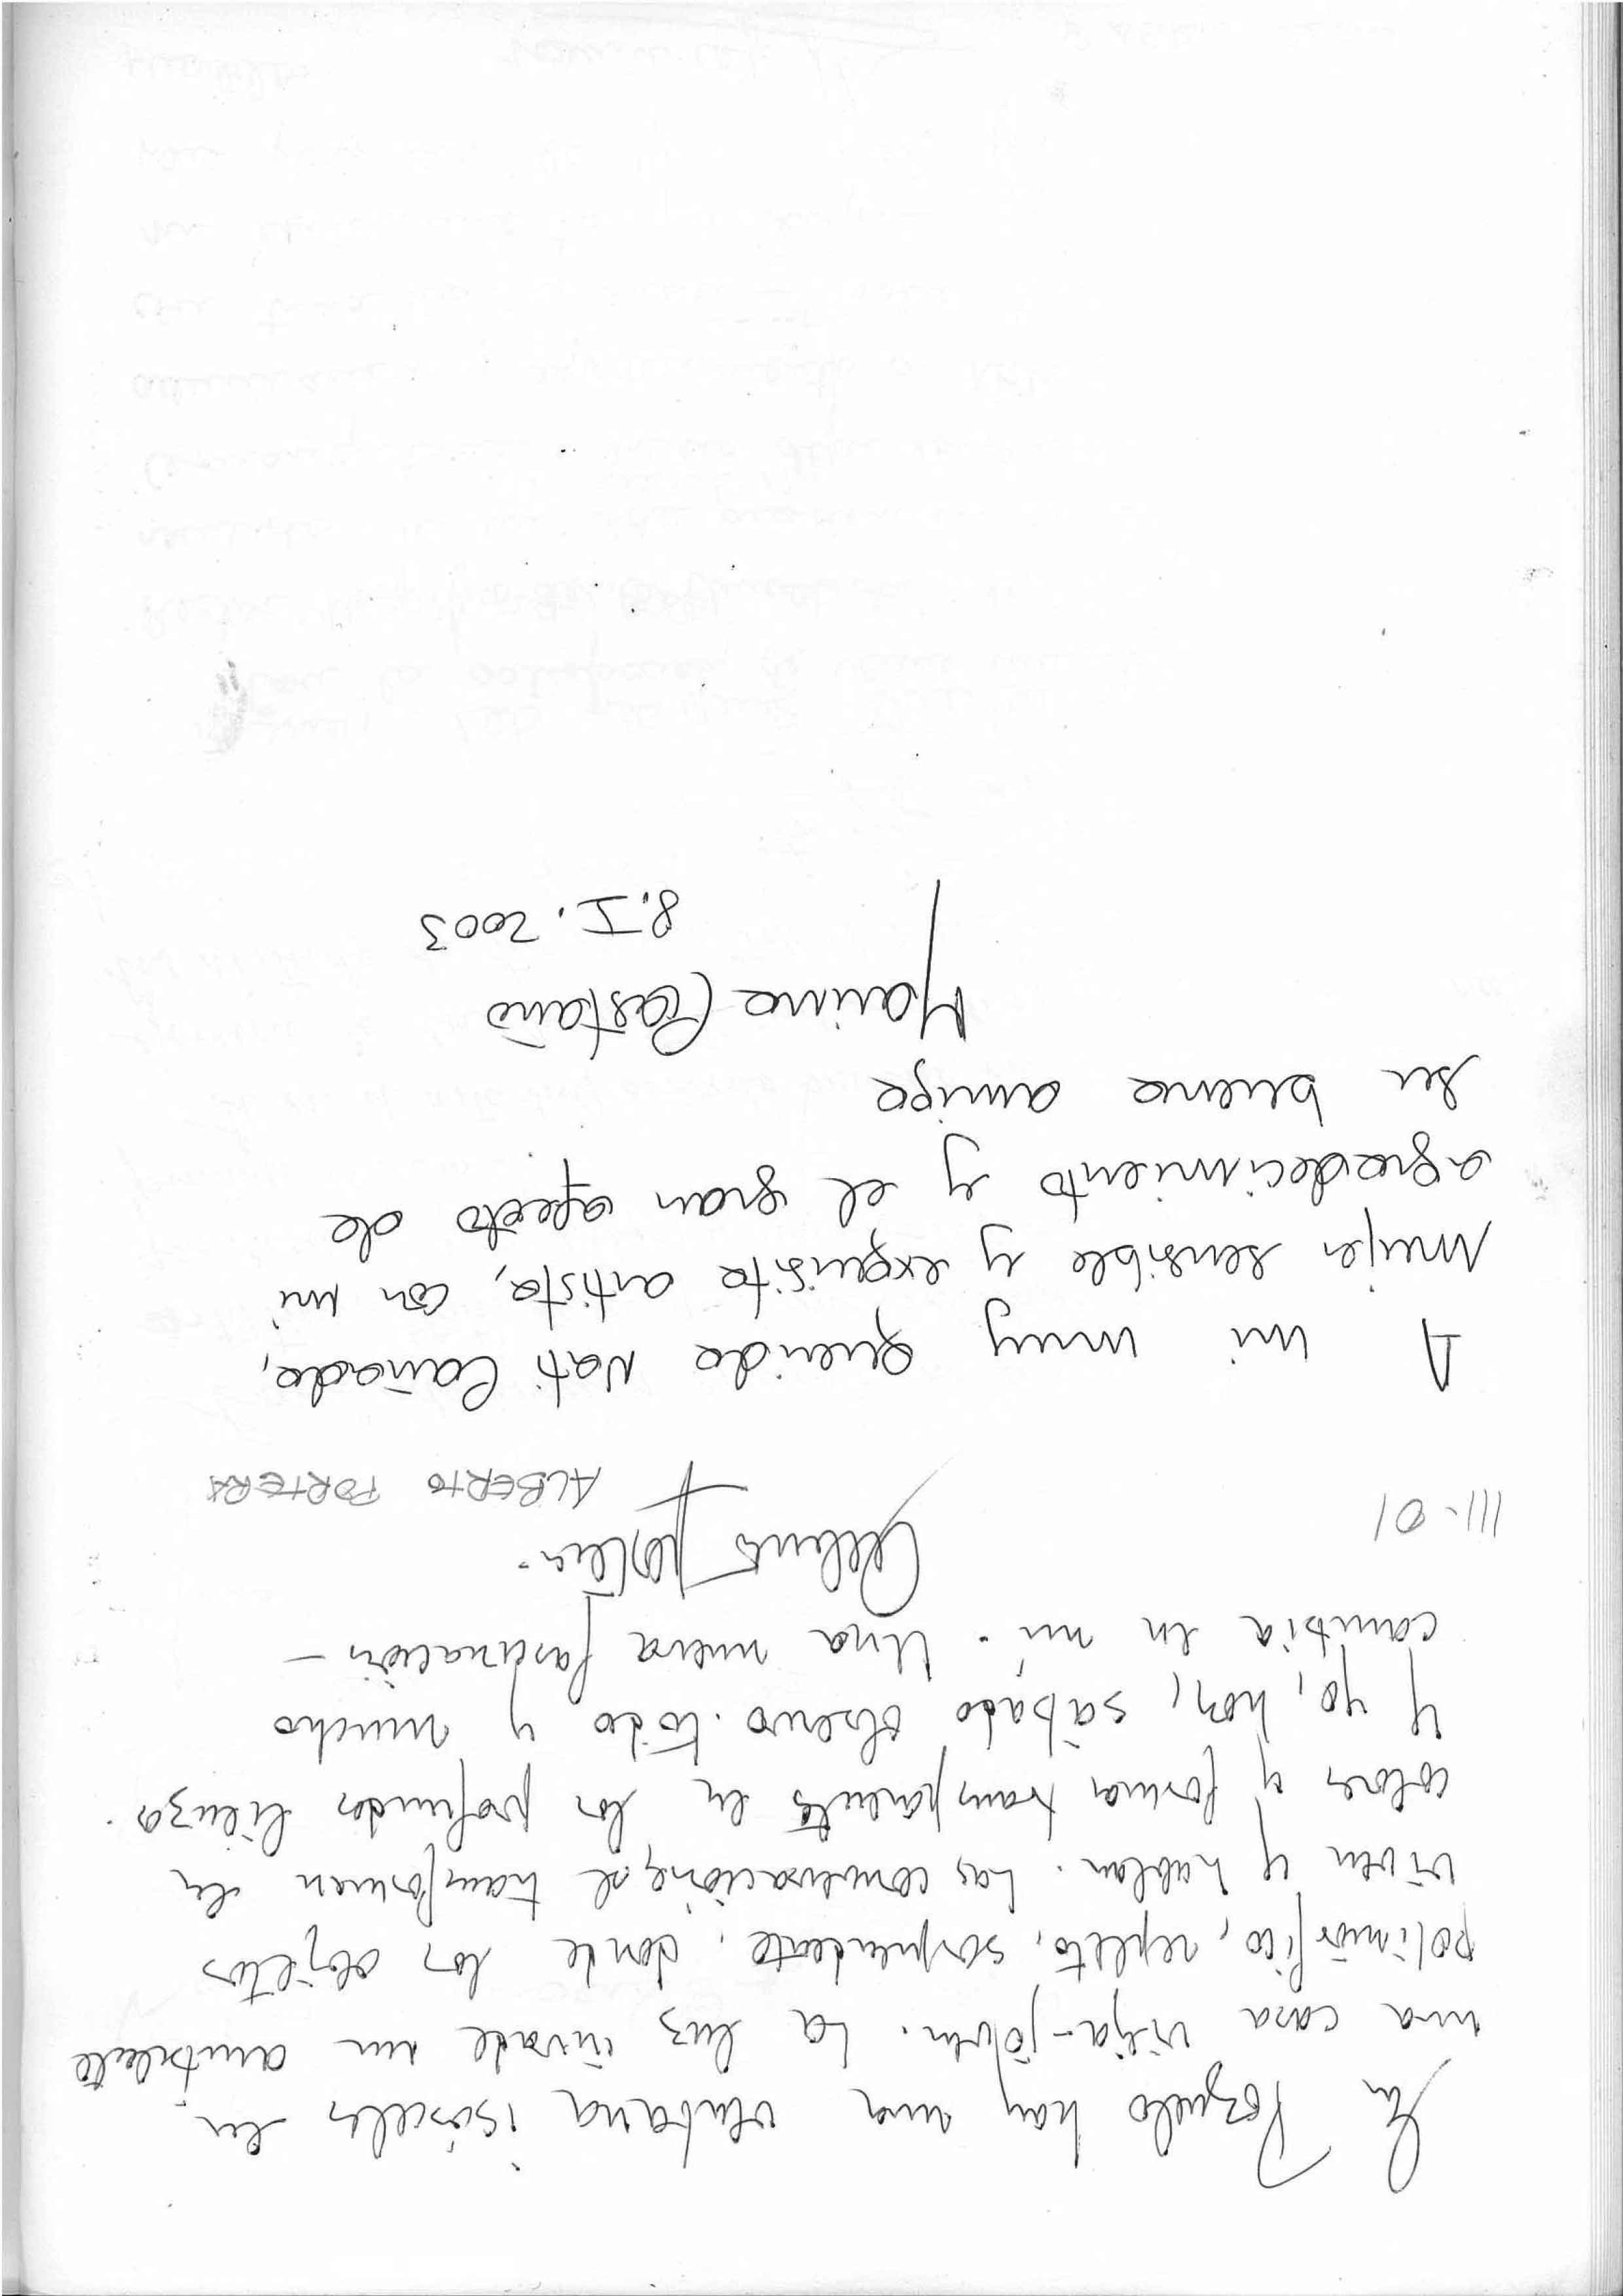 En Pozuelo hay una ventana isósceles en
una casa vieja-joven. La luz invade un ambiente
polimórfico, repleto, sorprendente, donde los objetos
viven y hablan. Las conversaciones se transforman en
colores y formas transparentes en los profundos lienzos.
Y yo, hoy, sábado observo todo y mucho
cambia en mí. Una nueva fascinación -
Alberto Portera.
III-01 ALBERTO PORTERA
A mi muy querida Nati Cañada,
mujer sensible y exquisita artista, con mi
agradecimiento y el gran afecto de
su buena amiga
Marina Castaño
8.I.2003